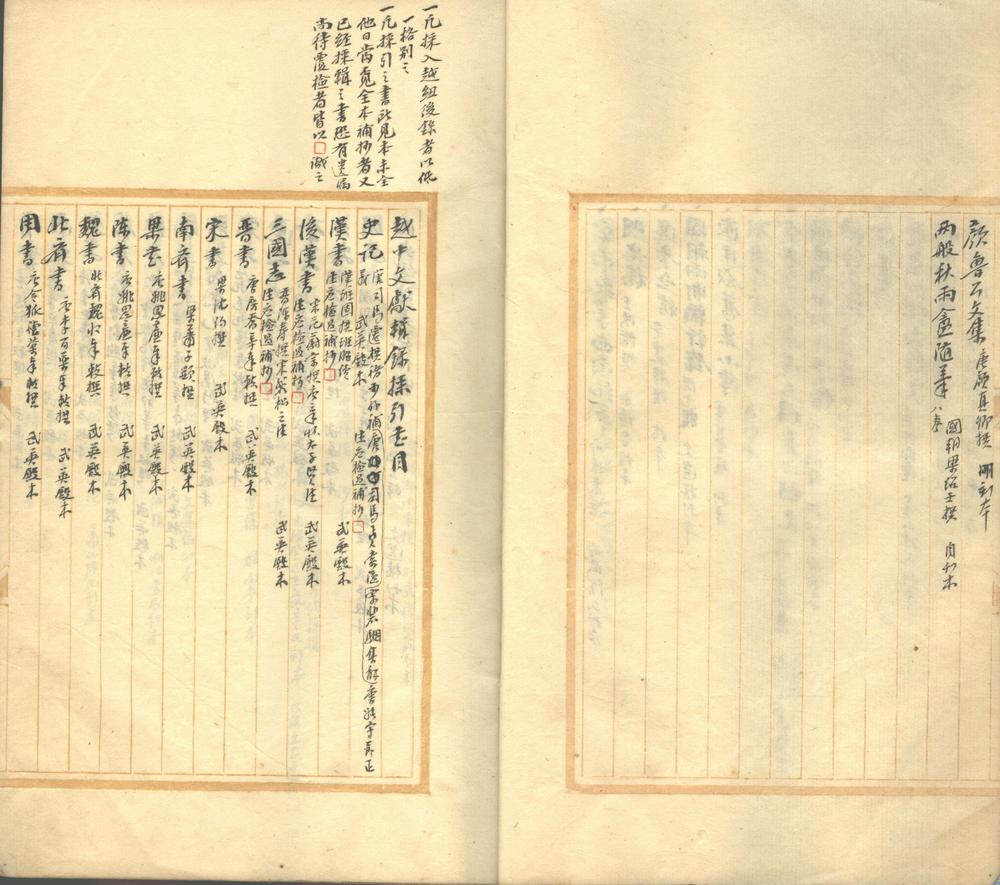 顏魯公文集 唐顏真卿撰 明刻本
兩般秋雨盦隨筆 八卷 國朝梁紹壬撰 自刊本
一凡採入越紐後錄者以低
一格別之
一凡採引之書所見本未全
他日當覓全本補抄者又
已經採輯之書恐有遺漏
尚待覆檢者皆以□識之
越中文獻輯錄採引書目
史記 漢司馬遷撰 褚少孫補 唐司馬貞索隱 宋裴駰集解 張守節正
義 武英殿本 注應檢過補抄□
漢書 漢班固撰 班昭續
注應檢過補抄□ 武英殿本
後漢書 宋范蔚宗撰 唐章懷太子賢注
注應檢過補抄□ 武英殿本
三國志 晉陳壽撰 宋裴松之注
注應檢過補抄□ 武英殿本
晉書 唐房喬等奉敕撰 武英殿本
宋書 梁沈約撰 武英殿本
南齊書 梁蕭子顯撰 武英殿本
梁書 唐姚思廉奉敕撰 武英殿本
陳書 唐姚思廉奉敕撰 武英殿本
魏書 北齊魏收奉敕撰 武英殿本
北齊書 唐李百藥奉敕撰 武英殿本
周書 唐令狐德棻等奉敕撰 武英殿本